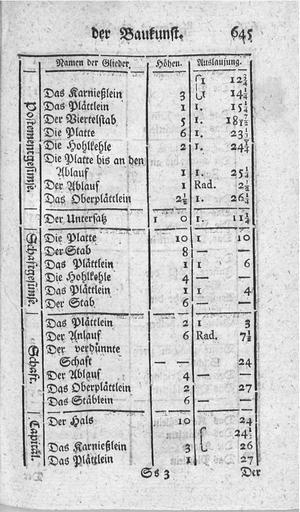 der Baukunst. 645
Namen der Glieder. Höhen. Ausladung.
Postementgesimse.
1 12¾
Das Karnießlein 3 1 14¼
Das Plättlein 1 1. 15¼
Der Viertelstab 5 1. 18
Die Platte 6 1. 23
Die Hohlkehle 2 1. 24
Die Platte bis an den
Ablauf 1 1. 25¼
Der Ablauf 1 Rad. 2
Das Oberplättlein 2½ 1. 26¼
Der Untersatz 1 0 1. 11¼
Schaftgesimse.
Die Platte 10 1 10
Der Stab 8 — —
Das Plättlein 1 1 6
Die Hohlkehle 4 — —
Das Plättlein 1 1 4
Der Stab 6 — —
Schaft.
Das Plättlein 2 1 3
Der Anlauf 6 Rad. 7½
Der verdünnte
Schaft — — 24
Der Ablauf 4 — —
Das Oberplättlein 2 27
Das Stäblein 6 — —
Capitäl.
Der Hals 10 24
24½
Das Karnießlein 3 26
Das Plättlein 1 27
Ss 3 Der